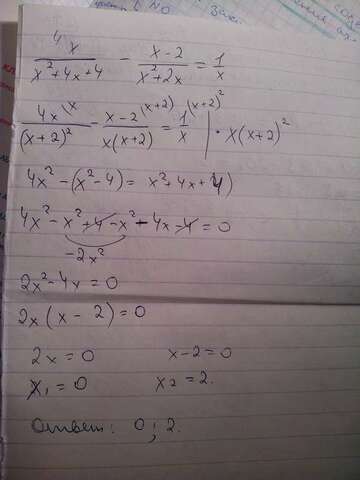 4x/(x²+4x+4) - (x-2)/(x²+2x) = 1/x
4x\x/(x+2)² - x-2\(x+2)/x(x+2) = 1\(x+2)²/x | · x(x+2)²
4x² - (x² - 4) = x² + 4x + 4)
4x² - x² + 4 - x² - 4x - 4 = 0
-2x²
2x² - 4x = 0
2x(x - 2) = 0
2x = 0 x-2 = 0
x₁ = 0 x₂ = 2.
Ответ: 0; 2.